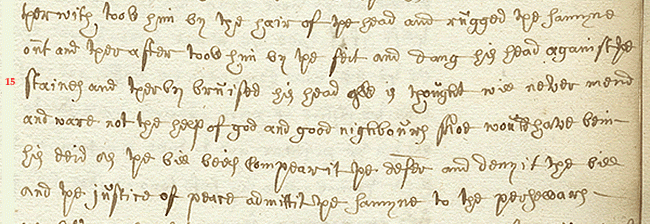 therwith, took him by the hair of the head and rugged the samyne
out and therafter took him by the feit and dang his head against the
15 staines and therby bruised his head q^lk is thought wil never mend
and ware not the help of god and good nighbours shoe would have bein
his deid as the bill beirs Compearit the defer and denyit the bill
and the justice of peace admittit the samyne to the persewars